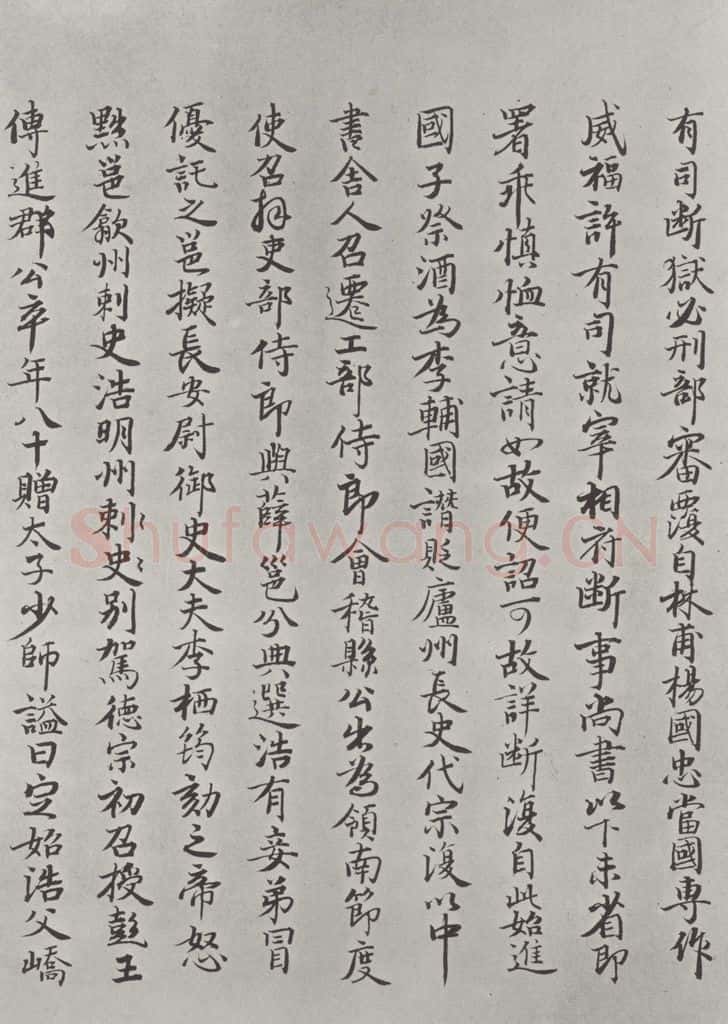 有司断獄必刑部審覆自林甫楊國忠當國專作
威福許有司就宰相府断事尚書以下未省即
署乖慎恤意請如故便詔可故詳断復自此始進
國子祭酒為李輔國譖貶廬州長史代宗復以中
書舍人召遷工部侍郎會稽縣公出為領南節度
使召拜吏部侍郎與薛邕分典選浩有妾弟冒
優託之邕擬長安尉御史大夫李栖筠劾之帝怒
黜邕歙州刺史浩明州刺史別駕德宗初召授彭王
傅進群公卒年八十贈太子少師謚曰定始浩父嶠
Shufawang.CN